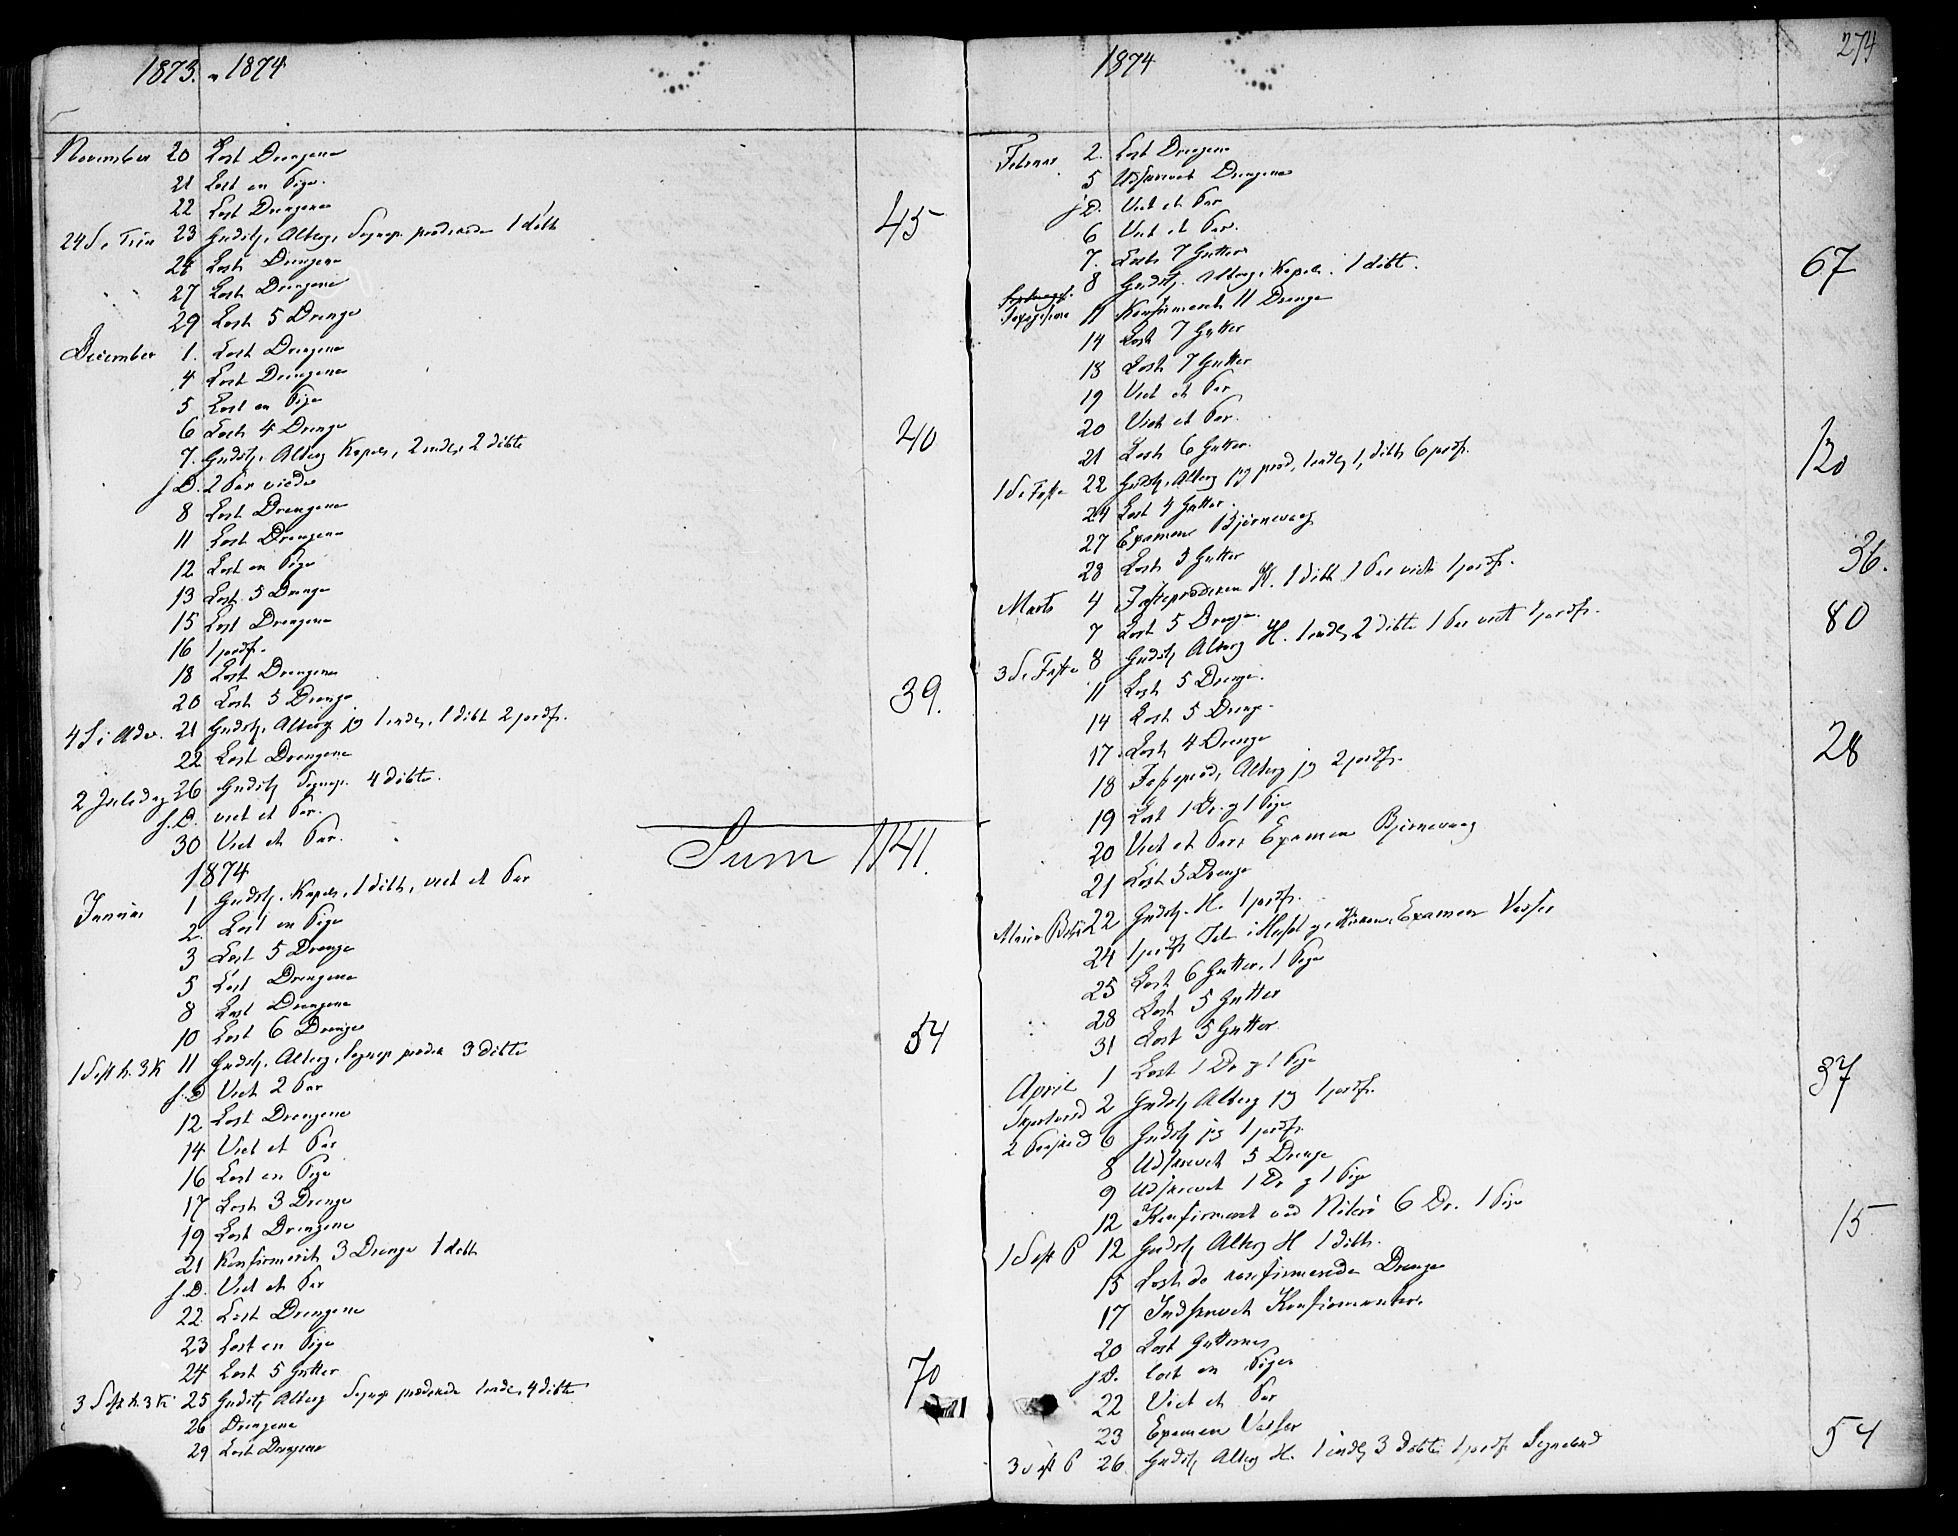 1873. - 1874
November 20 Læst Drengene
21 Læst en Pige.
22 Læst Drengene
24 S. e Trin 23 Gudstj. Alterg. Sognep. prædikede 1 døbt
24 Læst Drengene
45
27 Læst Drengene
29 Læst 5 Drenge
December 1. Læst Drengene
4 Læst Drengene
5 Læst en Pige
6 Læst 4 Drenge
7. Gudstj. Alterg Kapel, 2 indl. 2 døbte
40
s. D. 2 Par viede
8 Læst Drengene
11 Læst Drengene
12 Læst en Pige
13 Læst 5 Drenge
15 Læst Drengene
16 1 jordf.
18 Læst Drengene
20 Læst 5 Drenge
4 S. i Adv. 21 Gudstj. Alterg. jg 1 indl. 1 døbt 2 jordf.
39.
22 Læst Drengene
2 Juledag 26 Gudstj Sognep. 4 døbte.
s. D. viet et Par.
30 Viet et Par.
Sum 1141.
1874
Januar 1 Gudstj. Kapel. 1 døbt, viet et Par
2. Læst en Pige
3 Læst 5 Drenge
5 Læst Drengene
8 Læst Drengene
10 Læst 6 Drenge
1 S eft h. 3 K 11 Gudstj. Alterg. Sognep præd 3 døbte
54
s. D Viet 2 Par
12 Læst Drengene
14 Viet et Par
16 Læst en Pige
17 Læst 3 Drenge
19 Læst Drengene
21 Konfirmeret 3 Drenge 1 døbt
s. D. Viet et Par
22. Læst Drengene
23 Læst en Pige
24 Læst 5 Gutter
3 S eft h. 3 K 25 Gudstj Alterg Sognep prædikede 1 indl. 4 døbte
70
26 Drengene
29 Læst Drengene
1874
274
Februar 2. Læst Drengene
5 Udskrevet Drengene
s D. Viet et Par
6 Viet et Par.
7. Læst 7 Gutter
8 Gudstj. Alterg. Kapel. 1 døbt.
67
11 Konfirmeret 11 Drenge
14 Læst 7 Gutter
18 Læst 7 Gutter
19 Viet et Par
20 Viet et Par.
21 Læst 6 Gutter.
1 S. i Faste 22 Gudstj. Alterg jg præd, 1 indl, 1 døbt 6 jordf.
120
24 Læst 4 Gutter.
27 Examen Bjørnevaag
28 Læst 5 Gutter
Marts 4 Fasteprædiken H. 1 døbt 1 Par viet 1 jordf.
36.
7 Læst 5 Drenge.
3 S. i Faste 8 Gudstj Alterg H. 1 indl, 2 døbte 1 Par viet 1 jordf.
80
11 Læst 5 Drenge.
14 Læst 5 Drenge.
17. Læst 4 Drenge
18 Fastepræd, Alterg jg 2 jordf.
28
19 Læst 1 Dr. og 1 Pige
20 Viet et Par, Examen Bjørnevaag
21 Læst 5 Drenge
Maria Bebu 22 Gudstj. H. 1 jordf.
24 1 jordf Examen Vasser
25 Læst 6 Gutter. 1 Pige
28 Læst 5 Gutter
31 Læst 5 Gutter
April 1 Læst 1 Dr og 1 Pige
Skjærtorsd 2 Gudstj Alterg jg 1 jordf.
37
2 Paasked 6 Gudstj jg 1 jordf.
8 Udskrevet 5 Drenge
9 Udskrevet 1 Dr og 1 Pige
12 Konfirmeret 6 Dr. 1 Pige
1 S eft P 12 Gudstj Alterg H 1 døbt.
15
15 Læst de konfirmerede Drenge
17 Indskrevet Konfirmanter.
20 Læst Gutterne
s D. læst en Pige
22 Viet et Par
23 Examen Vasser
3 S eft P 26. Gudstj Alterg H. 1 indl, 3 døbte 1 jordf. Sognebud
54